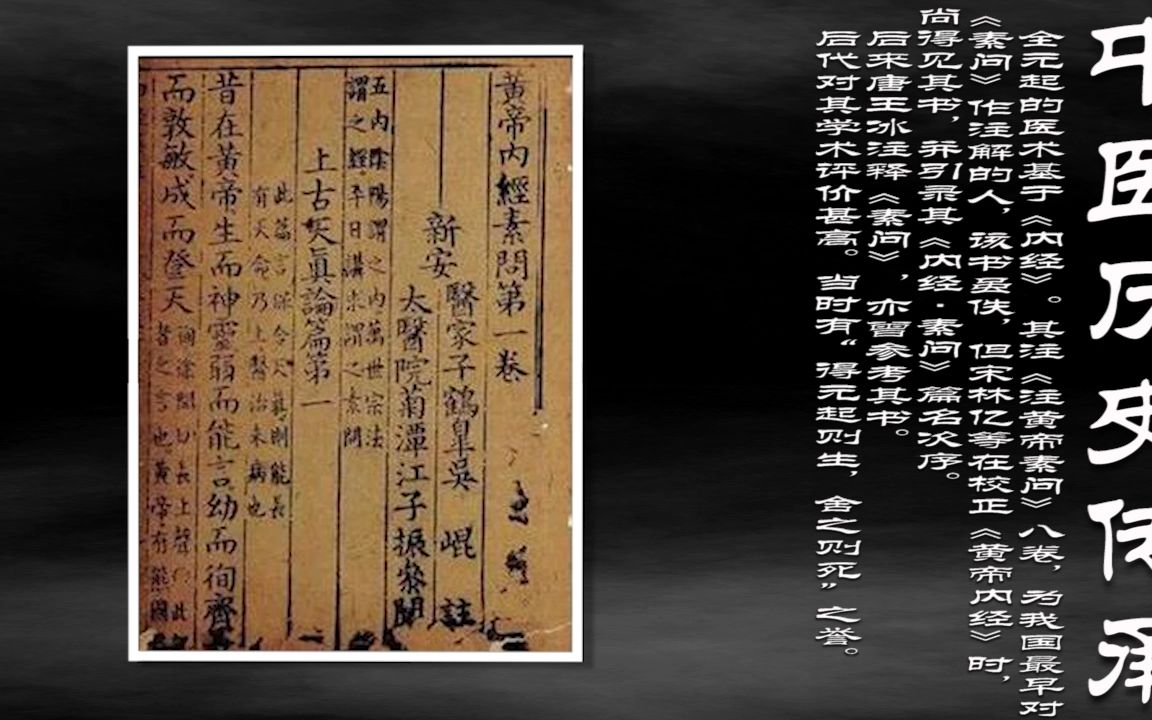 中医历史传承
全元起的医术基于《内经》。其注《注黄帝素问》八卷，为我国最早对
《素问》作注解的人，该书虽佚，但宋林亿等在校正《黄帝内经》时，
尚得见其书，并引录其《内经·素问》篇名次序。
后来唐王冰注释《素问》，亦曾参考其书。
后代对其学术评价甚高。当时有“得元起则生，舍之则死”之誉。
黃帝內經素問第一卷
新安
醫家子鶴皐吳崐註
太醫院菊潭江子振參閱
五內陰陽謂之內萬世宗法
謂之經平日講求謂之素問
上古天眞論篇第一
此篇言保合天真則能長
有天命乃上醫治未病也
昔在黃帝生而神靈弱而能言幼而徇齊
而敦敏成而登天